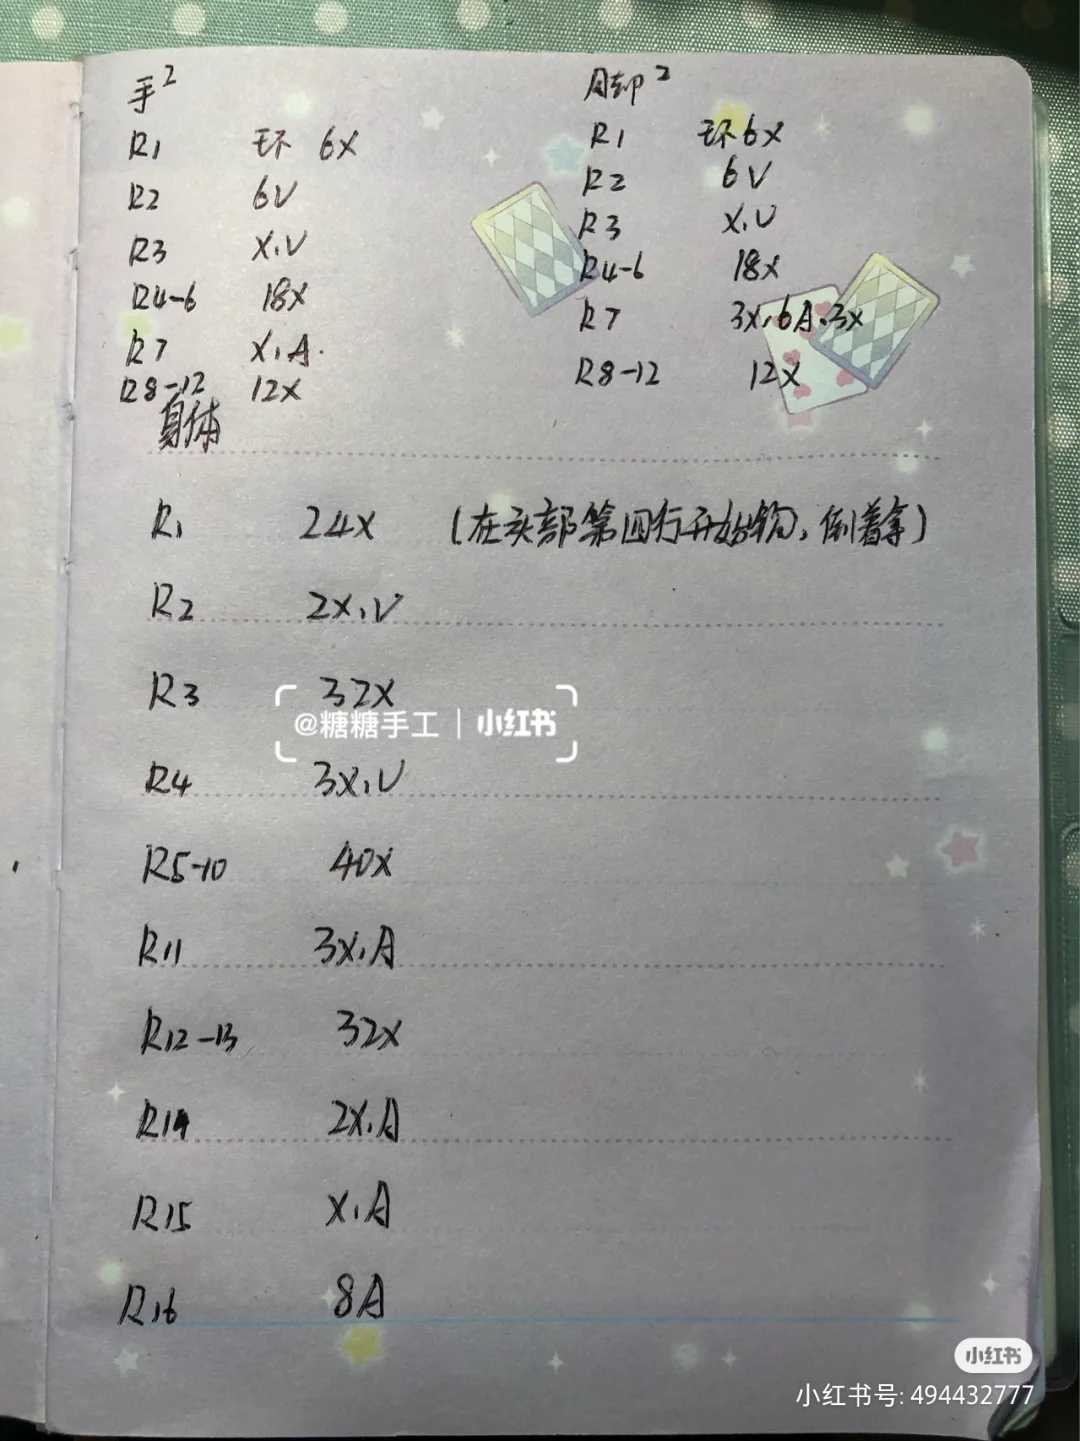 手2
R1 环 6X
R2 6V
R3 X,V
R4-6 18X
R7 X,A.
R8-12 12X
脚2
R1 环6X
R2 6V
R3 X,V
R4-6 18X
R7 3X,6A,3X
R8-12 12X
身体
R1 24X (在头部第四行开始钩,倒着拿)
R2 2X,V
R3 32X
@糖糖手工 | 小红书
R4 3X,V
R5-10 40X
R11 3X,A
R12-13 32X
R14 2X,A
R15 X,A
R16 8A
小红书
小红书号: 494432777